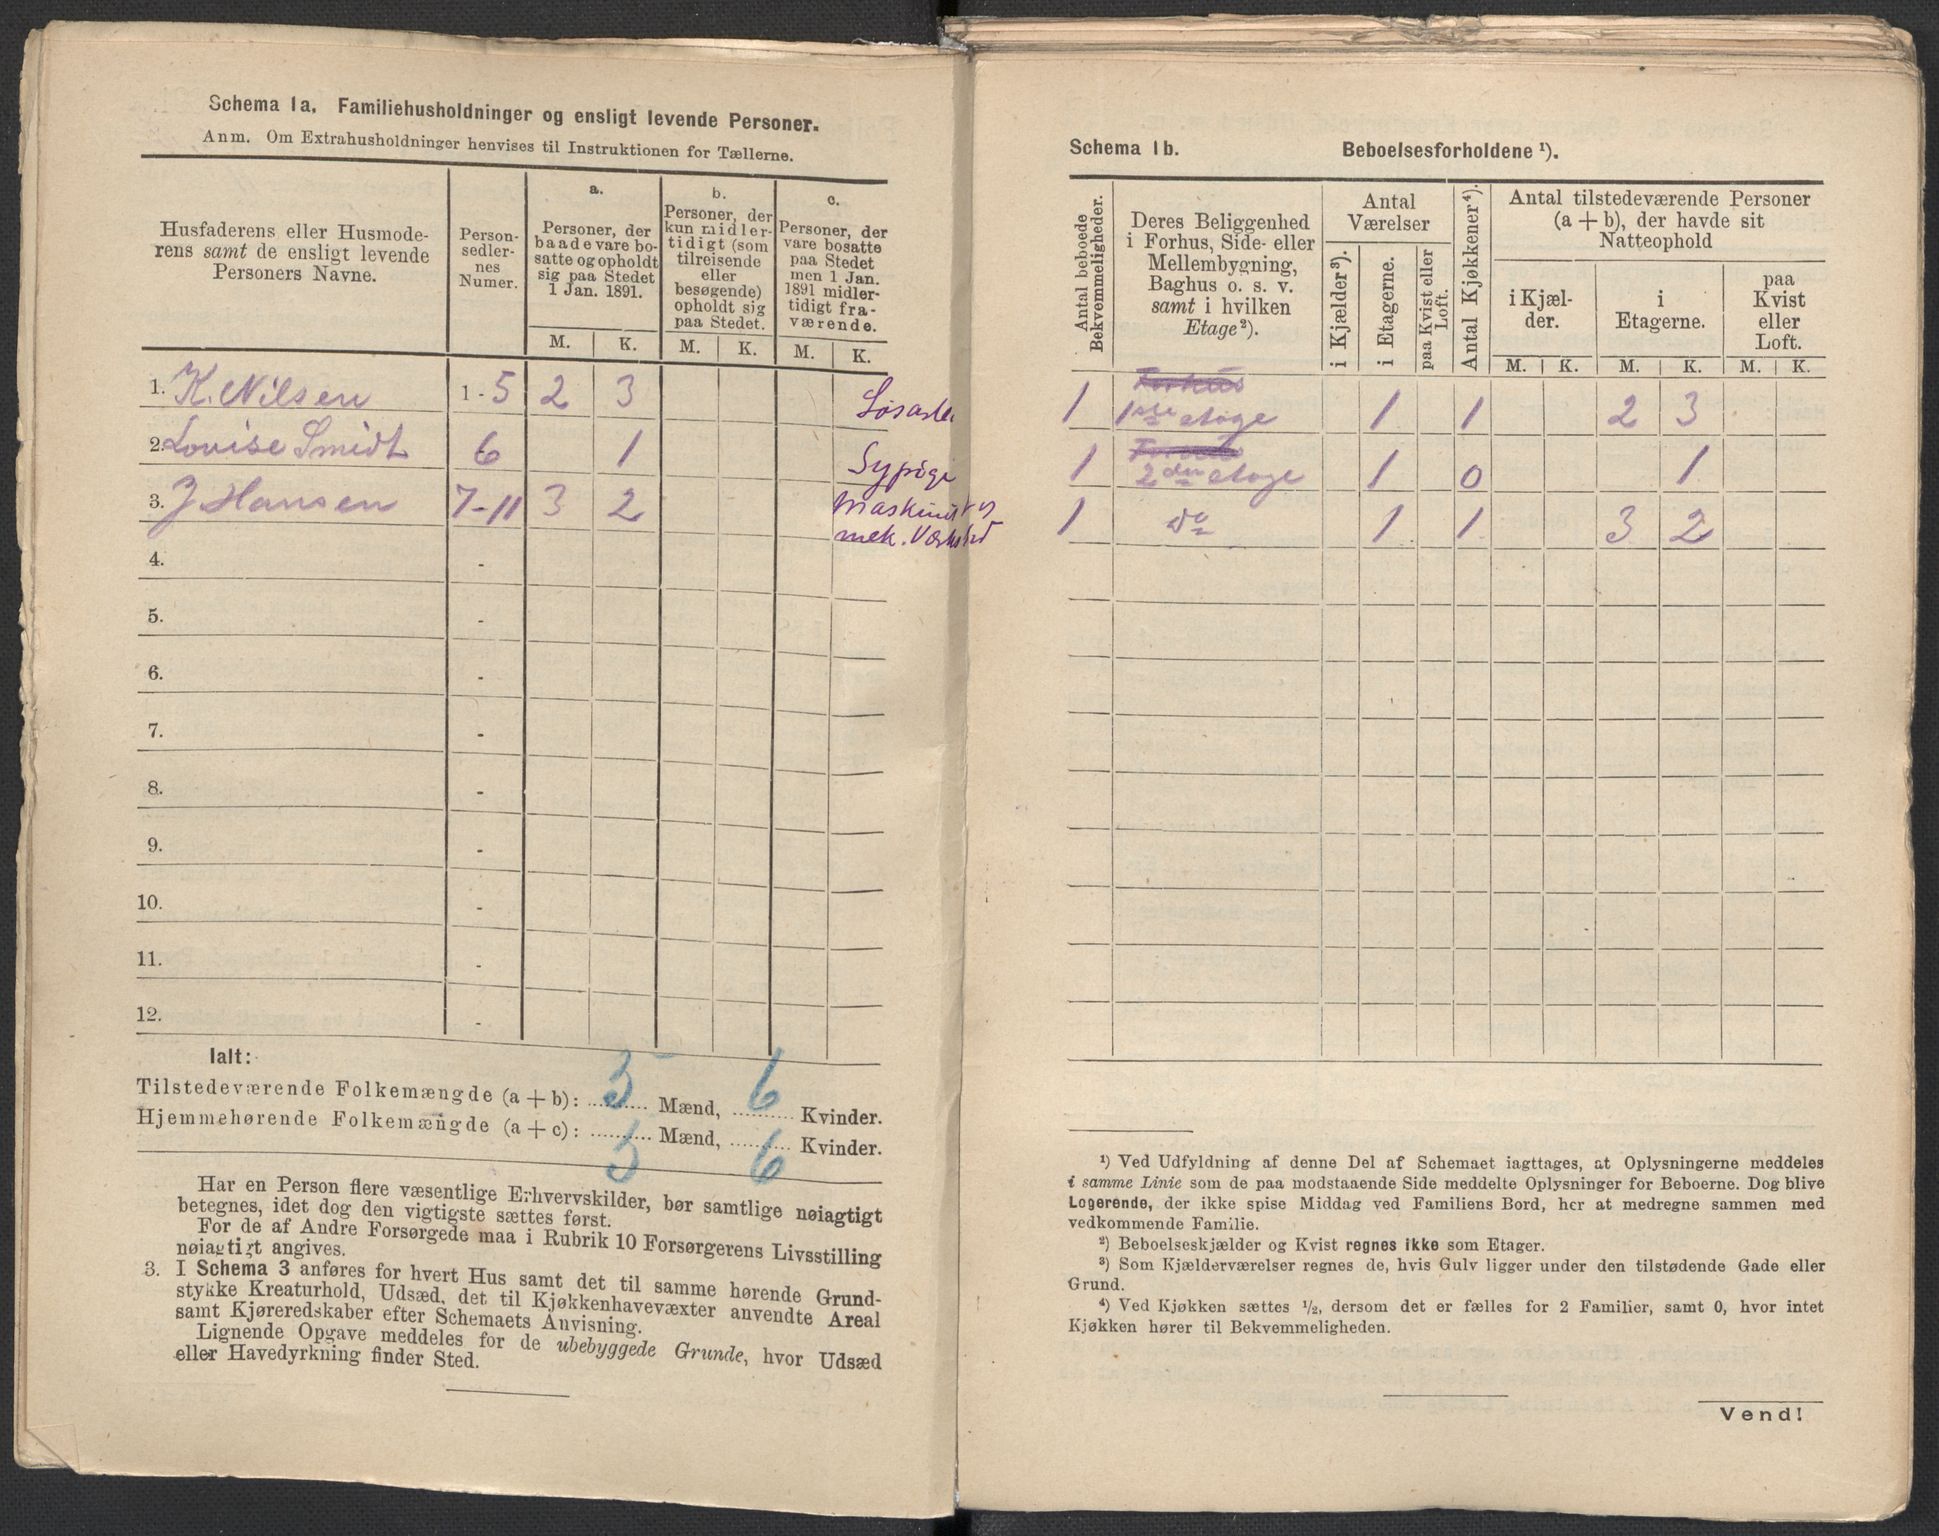 Schema 1 a. Familiehusholdninger og ensligt levende Personer.
Anm. Om Extrahusholdninger henvises til Instruktionen for Tællerne.
Husfaderens eller Husmode-
rens samt de ensligt levende
Personers Navne.
Person-
sedler-
nes
Numer.
a.
Personer, der
baade vare bo-
satte og opholdt
sig paa Stedet
1 Jan. 1891.
b.
Personer, der
kun midler-
tidigt (som
tilreisende
eller
besøgende)
opholdt sig
paa Stedet.
c.
Personer, der
vare bosatte
paa Stedet
men 1 Jan.
1891 midler-
tidigt fra-
værende.
M. K. M. K. M. K.
1. K. Nilsen 1 - 5 2 3
2. Lovise Smidt 6 1 Sypige
3. J Hansen 7-11 3 2 Maskinist
mek. Værksted
4. -
5. -
6. -
7. -
8. -
9. -
10. -
11. -
12. -
Ialt:
Tilstedeværende Folkemængde (a + b): 5 Mænd, 6 Kvinder.
Hjemmehørende Folkemængde (a + c): 5 Mænd, 6 Kvinder.
Har en Person flere væsentlige Erhvervskilder, bør samtlige nøiagtigt
betegnes, idet dog den vigtigste sættes først.
For de af Andre Forsørgede maa i Rubrik 10 Forsørgerens Livsstilling
nøiagtigt angives.
3. I Schema 3 anføres for hvert Hus samt det til samme hørende Grund-
stykke Kreaturhold, Udsæd, det til Kjøkkenhavevæxter anvendte Areal
samt Kjøreredskaber efter Schemaets Anvisning.
Lignende Opgave meddeles for de ubebyggede Grunde, hvor Udsæd
eller Havedyrkning finder Sted.
Schema 1 b. Beboelsesforholdene ¹).
Antal beboede
Bekvemmeligheder.
Deres Beliggenhed
i Forhus, Side- eller
Mellembygning,
Baghus o. s. v.
samt i hvilken
Etage²).
Antal
Værelser
i Kjælder³).
i Etagerne.
paa Kvist eller
Loft.
Antal Kjøkkener⁴).
Antal tilstedeværende Personer
(a + b), der havde sit
Natteophold
i Kjæl-
der.
i
Etagerne.
paa
Kvist
eller
Loft.
M. K. M. K. M. K.
1 Forhus
1ste etage 1 1 2 3
1
2den etage 1 0 1
1 do 1 1 3 2
¹) Ved Udfyldning af denne Del af Schemaet iagttages, at Oplysningerne meddeles
i samme Linie som de paa modstaaende Side meddelte Oplysninger for Beboerne. Dog blive
Logerende, der ikke spise Middag ved Familiens Bord, her at medregne sammen med
vedkommende Familie.
²) Beboelseskjælder og Kvist regnes ikke som Etager.
³) Som Kjælderværelser regnes de, hvis Gulv ligger under den tilstødende Gade eller
Grund.
⁴) Ved Kjøkken sættes ½, dersom det er fælles for 2 Familier, samt 0, hvor intet
Kjøkken hører til Bekvemmeligheden.
Vend!